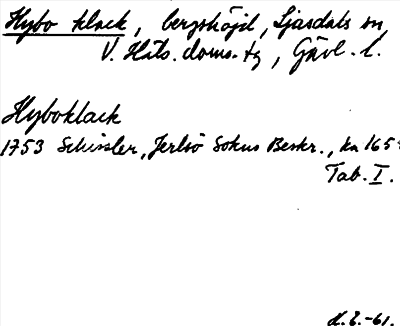 Hybo klack, bergshöjd, Ljusdals sn
V. Häls. doms. tg, Gävl. l.
Hyboklack
1753 Schissler, Jerlsö Sokns Beskr., kn 165
Tab. I.
-61.